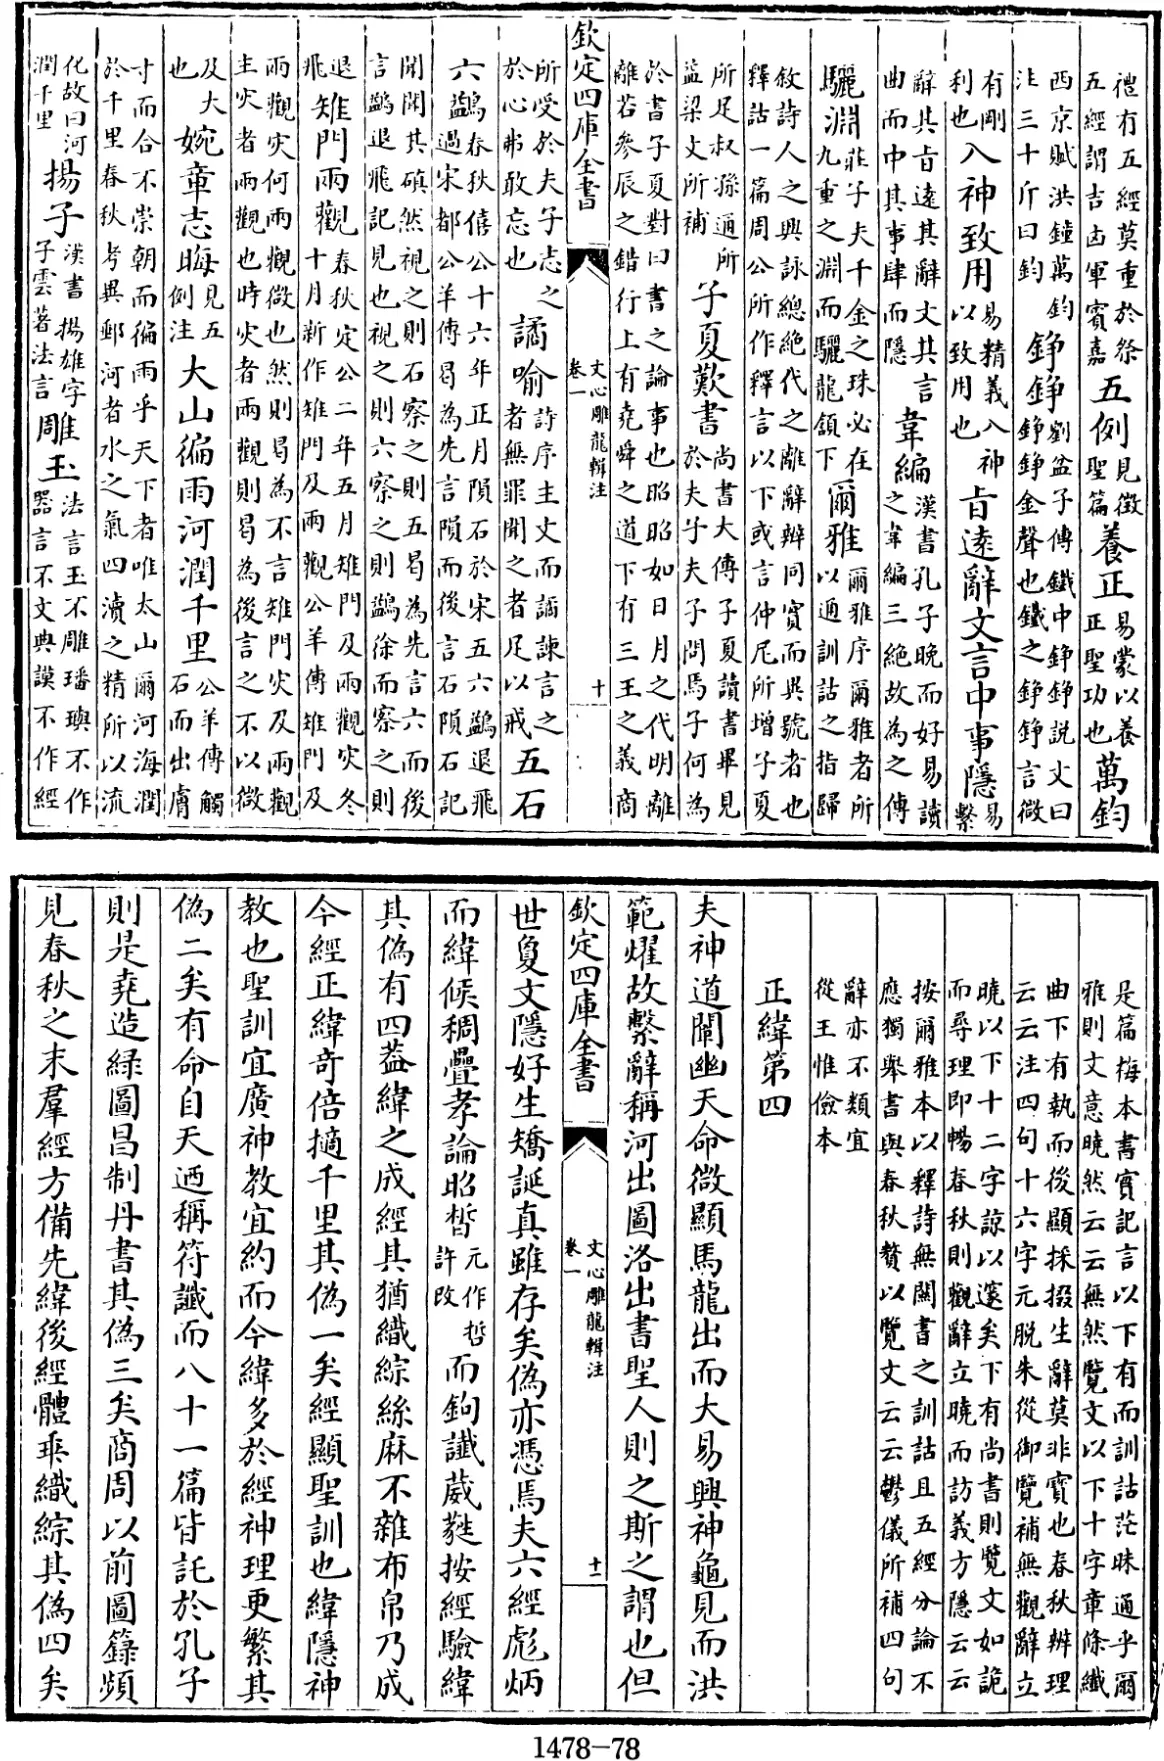 禮有五經莫重於祭五經謂吉凶軍賓嘉 五例 見徵聖篇 養正 易蒙以養正聖功也 萬鈞
西京賦洪鐘萬鈞注三十斤曰鈞 錚錚 劉盆子傳鐵中錚錚說文曰錚錚金聲也鐵之錚錚言微
有剛利也 入神致用 易精義入神以致用也 旨遠辭文言中事隱 易繫
辭其旨遠其辭文其言曲而中其事肆而隱 韋編 漢書孔子晚而好易讀之韋編三絕故為之傳
驪淵 莊子夫千金之珠必在九重之淵而驪龍頷下 爾雅 爾雅序爾雅者所以通訓詁之指歸
敘詩人之興詠總絕代之離辭辨同實而異號者也釋詁一篇周公所作釋言以下或言仲尼所增子夏
所足叔孫通所益梁文所補 子夏歎書 尚書大傳子夏讀書畢見於夫子夫子問焉子何為
於書子夏對曰書之論事也昭昭如日月之代明離離若參辰之錯行上有堯舜之道下有三王之義商
欽定四庫全書 文心雕龍輯注 卷一 十
所受於夫子志之於心弗敢忘也 譎喻 詩序主文而譎諫言之者無罪聞之者足以戒 五石
六鷁 春秋僖公十六年正月隕石於宋五六鷁退飛過宋都公羊傳曷為先言隕而後言石隕石記
聞聞其磌然視之則石察之則五曷為先言六而後言鷁退飛記見也視之則六察之則鷁徐而察之則
退飛 雉門兩觀 春秋定公二年五月雉門及兩觀災冬十月新作雉門及兩觀公羊傳雉門及
兩觀災何兩觀微也然則曷為不言雉門災及兩觀主災者兩觀也時災者兩觀則曷為後言之不以微
及大也 婉章志晦 見五例注 大山徧雨河潤千里 公羊傳觸石而出膚
寸而合不崇朝而徧雨乎天下者唯太山爾河海潤於千里春秋考異郵河者水之氣四瀆之精所以流
化故曰河潤千里 揚子 漢書揚雄字子雲著法言 雕玉 法言玉不雕璠璵不作器言不文典謨不作經
是篇梅本書實記言以下有而訓詁茫昧通乎爾雅則文意曉然云云無然覽文以下十字章條纖
曲下有執而後顯採掇生辭莫非寶也春秋辨理云云注四句十六字元脫朱從御覽補無觀辭立
曉以下十二字諒以邃矣下有尚書則覽文如詭而尋理即暢春秋則觀辭立曉而訪義方隱云云
按爾雅本以釋詩無關書之訓詁且五經分論不應獨舉書與春秋贅以覽文云云鬱儀所補四句
辭亦不類宜從王惟儉本
正緯第四
夫神道闡幽天命微顯馬龍出而大易興神龜見而洪
範燿故繫辭稱河出圖洛出書聖人則之斯之謂也但
欽定四庫全書 文心雕龍輯注 卷一 十一
世敻文隱好生矯誕真雖存矣偽亦憑焉夫六經彪炳
而緯候稠疊孝論昭晳 元作哲許改 而鉤讖葳蕤按經驗緯
其偽有四蓋緯之成經其猶織綜絲麻不雜布帛乃成
今經正緯奇倍擿千里其偽一矣經顯聖訓也緯隱神
教也聖訓宜廣神教宜約而今緯多於經神理更繁其
偽二矣有命自天迺稱符讖而八十一篇皆託於孔子
則是堯造綠圖昌制丹書其偽三矣商周以前圖籙頻
見春秋之末羣經方備先緯後經體乖織綜其偽四矣
1478-78